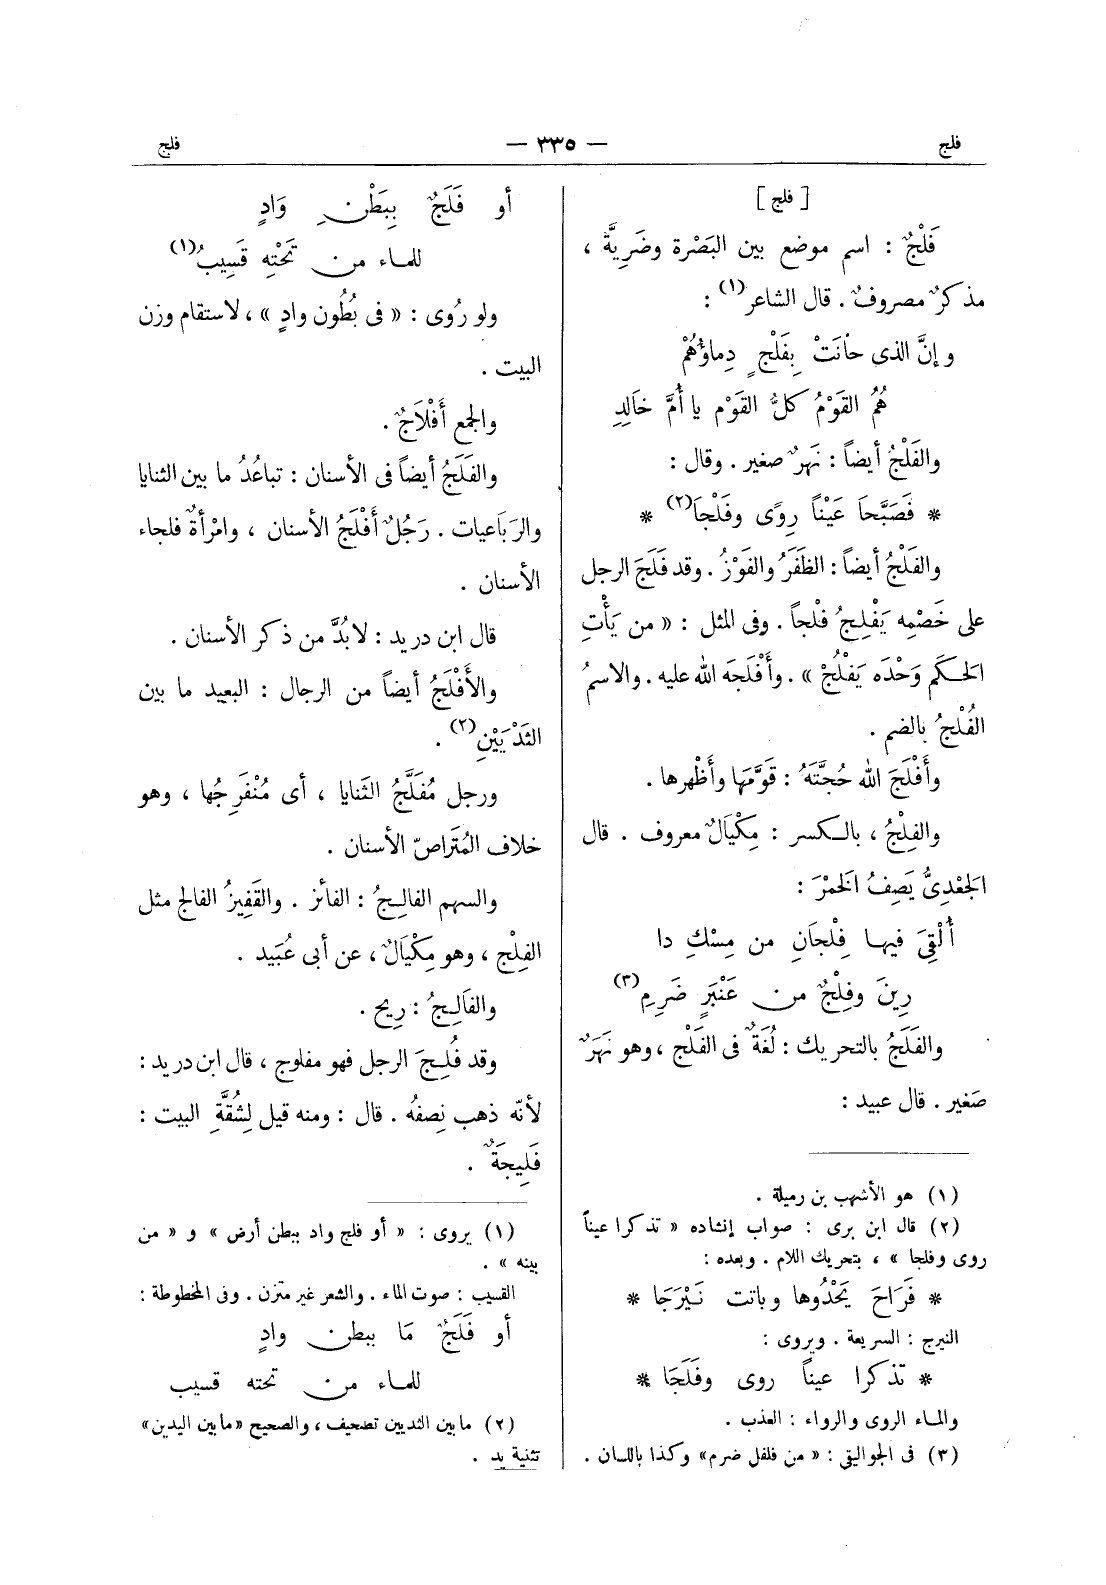 فلج
— ٣٣٥ —
فلج
[ فلج ]
فَلْجٌ : اسم موضع بين البَصْرة وضَرِيَّةَ ،
مذكرٌ مصروفٌ . قال الشاعر(١) :
وإنَّ الذى حاَنَتْ بِفَلْجٍ دِماؤُهُمْ
هُمُ القَوْمُ كلُّ القَوْم يا أُمَّ خَالِدِ
والفَلْجُ أيضاً : نَهَرٌ صغير . وقال :
* فَصَبَّحَا عَيْناً رِوًى وفَلْجَا(٢) *
والفَلْجُ أيضاً : الظَفَرُ والفَوْزُ . وقد فَلَجَ الرجل
على خَصْمِه يَفْلِجُ فلْجاً . وفى المثل : « من يَأْتِ
الحَكَم وَحْدَه يَفْلُجْ » . وأَفْلَجَه الله عليه . والاسمُ
الفُلْجُ بالضم .
وأَفْلَجَ الله حُجَّتَهُ : قَوَّمَهَا وأَظْهرها .
والفِلْجُ ، بالكسر : مِكْيَالٌ معروف . قال
الجَعْدِىُّ يَصِفُ الخَمْرَ :
أُلْقِىَ فيها فِلْجَانِ من مِسْكِ دا
رِينَ وفِلْجٌ من عَنْبَرٍ ضَرِمِ(٣)
والفَلَجُ بالتحريك : لُغَةٌ فى الفَلْج ، وهو نَهَرٌ
صَغير . قال عبيد :
(١) هو الأشهب بن رميلة .
(٢) قال ابن برى : صواب إنشاده « تذكرا عيناً
روى وفلجا » ، بتحريك اللام . وبعده :
* فَرَاحَ يَحْدُوها وباتت نَيْرَجَا *
النيرج : السريعة . ويروى :
* تذكرا عيناً روى وفَلَجَا *
والماء الروى والرواء : العذب .
(٣) فى الجواليقى : « من فلفل ضرم » وكذا باللسان .
أو فَلَجٌ بِبَطْنِ وَادٍ
للماء من تَحْتِهِ قَسِيبُ(١)
ولو رُوى : « فى بُطُون وادٍ » ، لاستقام وزن
البيت .
والجمع أَفْلَاجٌ .
والفَلَجُ أيضاً فى الأسنان : تباعُدُ ما بين الثنايا
والرَبَاعيات . رَجُلٌ أَفْلَجُ الأسنان ، وامْرأةٌ فلجاء
الأسنان .
قال ابن دريد : لا بُدَّ من ذكر الأسنان .
والأَفْلَجُ أيضاً من الرجال : البعيد ما بين
الثَدْيَيْنِ(٢) .
ورجل مُفَلَّجُ الثَنايا ، أى مُنْفَرِجُها ، وهو
خلاف المُتَراصّ الأسنان .
والسهم الفالِجُ : الفائز . والقَفِيزُ الفالج مثل
الفِلْج ، وهو مِكْيَالٌ ، عن أبى عُبَيد .
والفَالِجُ : رِيح .
وقد فُلِجَ الرجل فهو مفلوج ، قال ابن دريد :
لأنّه ذهب نِصفُه . قال : ومنه قيل لِشُقَّةِ البيت :
فَلِيجَةٌ .
(١) يروى : « أو فلج واد ببطن أرض » و « من
بينه » .
القسيب : صوت الماء . والشعر غير متزن . وفى المخطوطة :
أو فَلَجٌ مَا ببطن وادٍ
للماء من تحته قسيب
(٢) ما بين الثديين تصحيف ، والصحيح « ما بين اليدين »
تثنية يد .